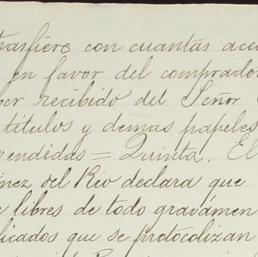 trasfiere con cuantas acc
en favor del comprador
ber recibido del Señor
titulos y demas papeles
vendidas = Quinta. El
inez del Rio declara que
e libres de todo gravámen
licados que se protocolizan